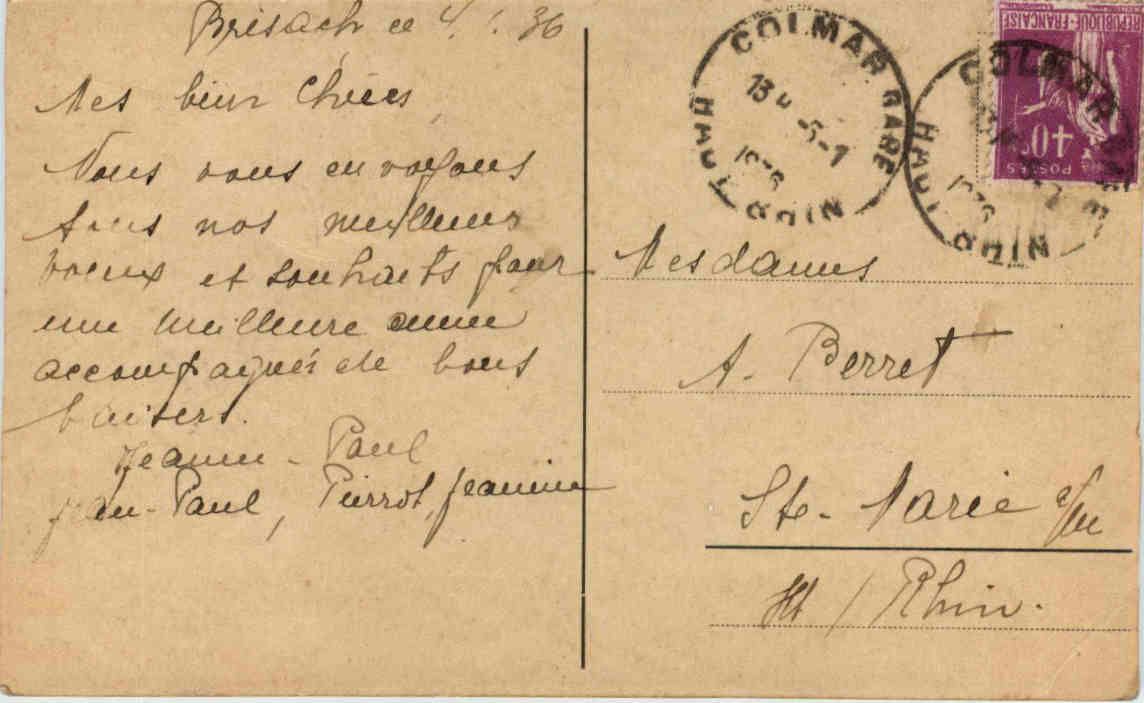 Brisach ce 4.1.36
Mes bien Chères
Nous vous envoyons
tous nos meilleurs
voeux et souhaits pour
une meilleure année
accompagnés de bons
baisers.
Jeanne - Paul
Jean-Paul, Pierrot, Jeannine
COLMAR GARE
13H
5-1
1936
HAUT RHIN
COLMAR
1936
HAUT RHIN
REPUBLIQUE-FRANÇAISE
40c
POSTES
Mesdames
A. Berret
Ste-Marie a/M
Ht / Rhin.